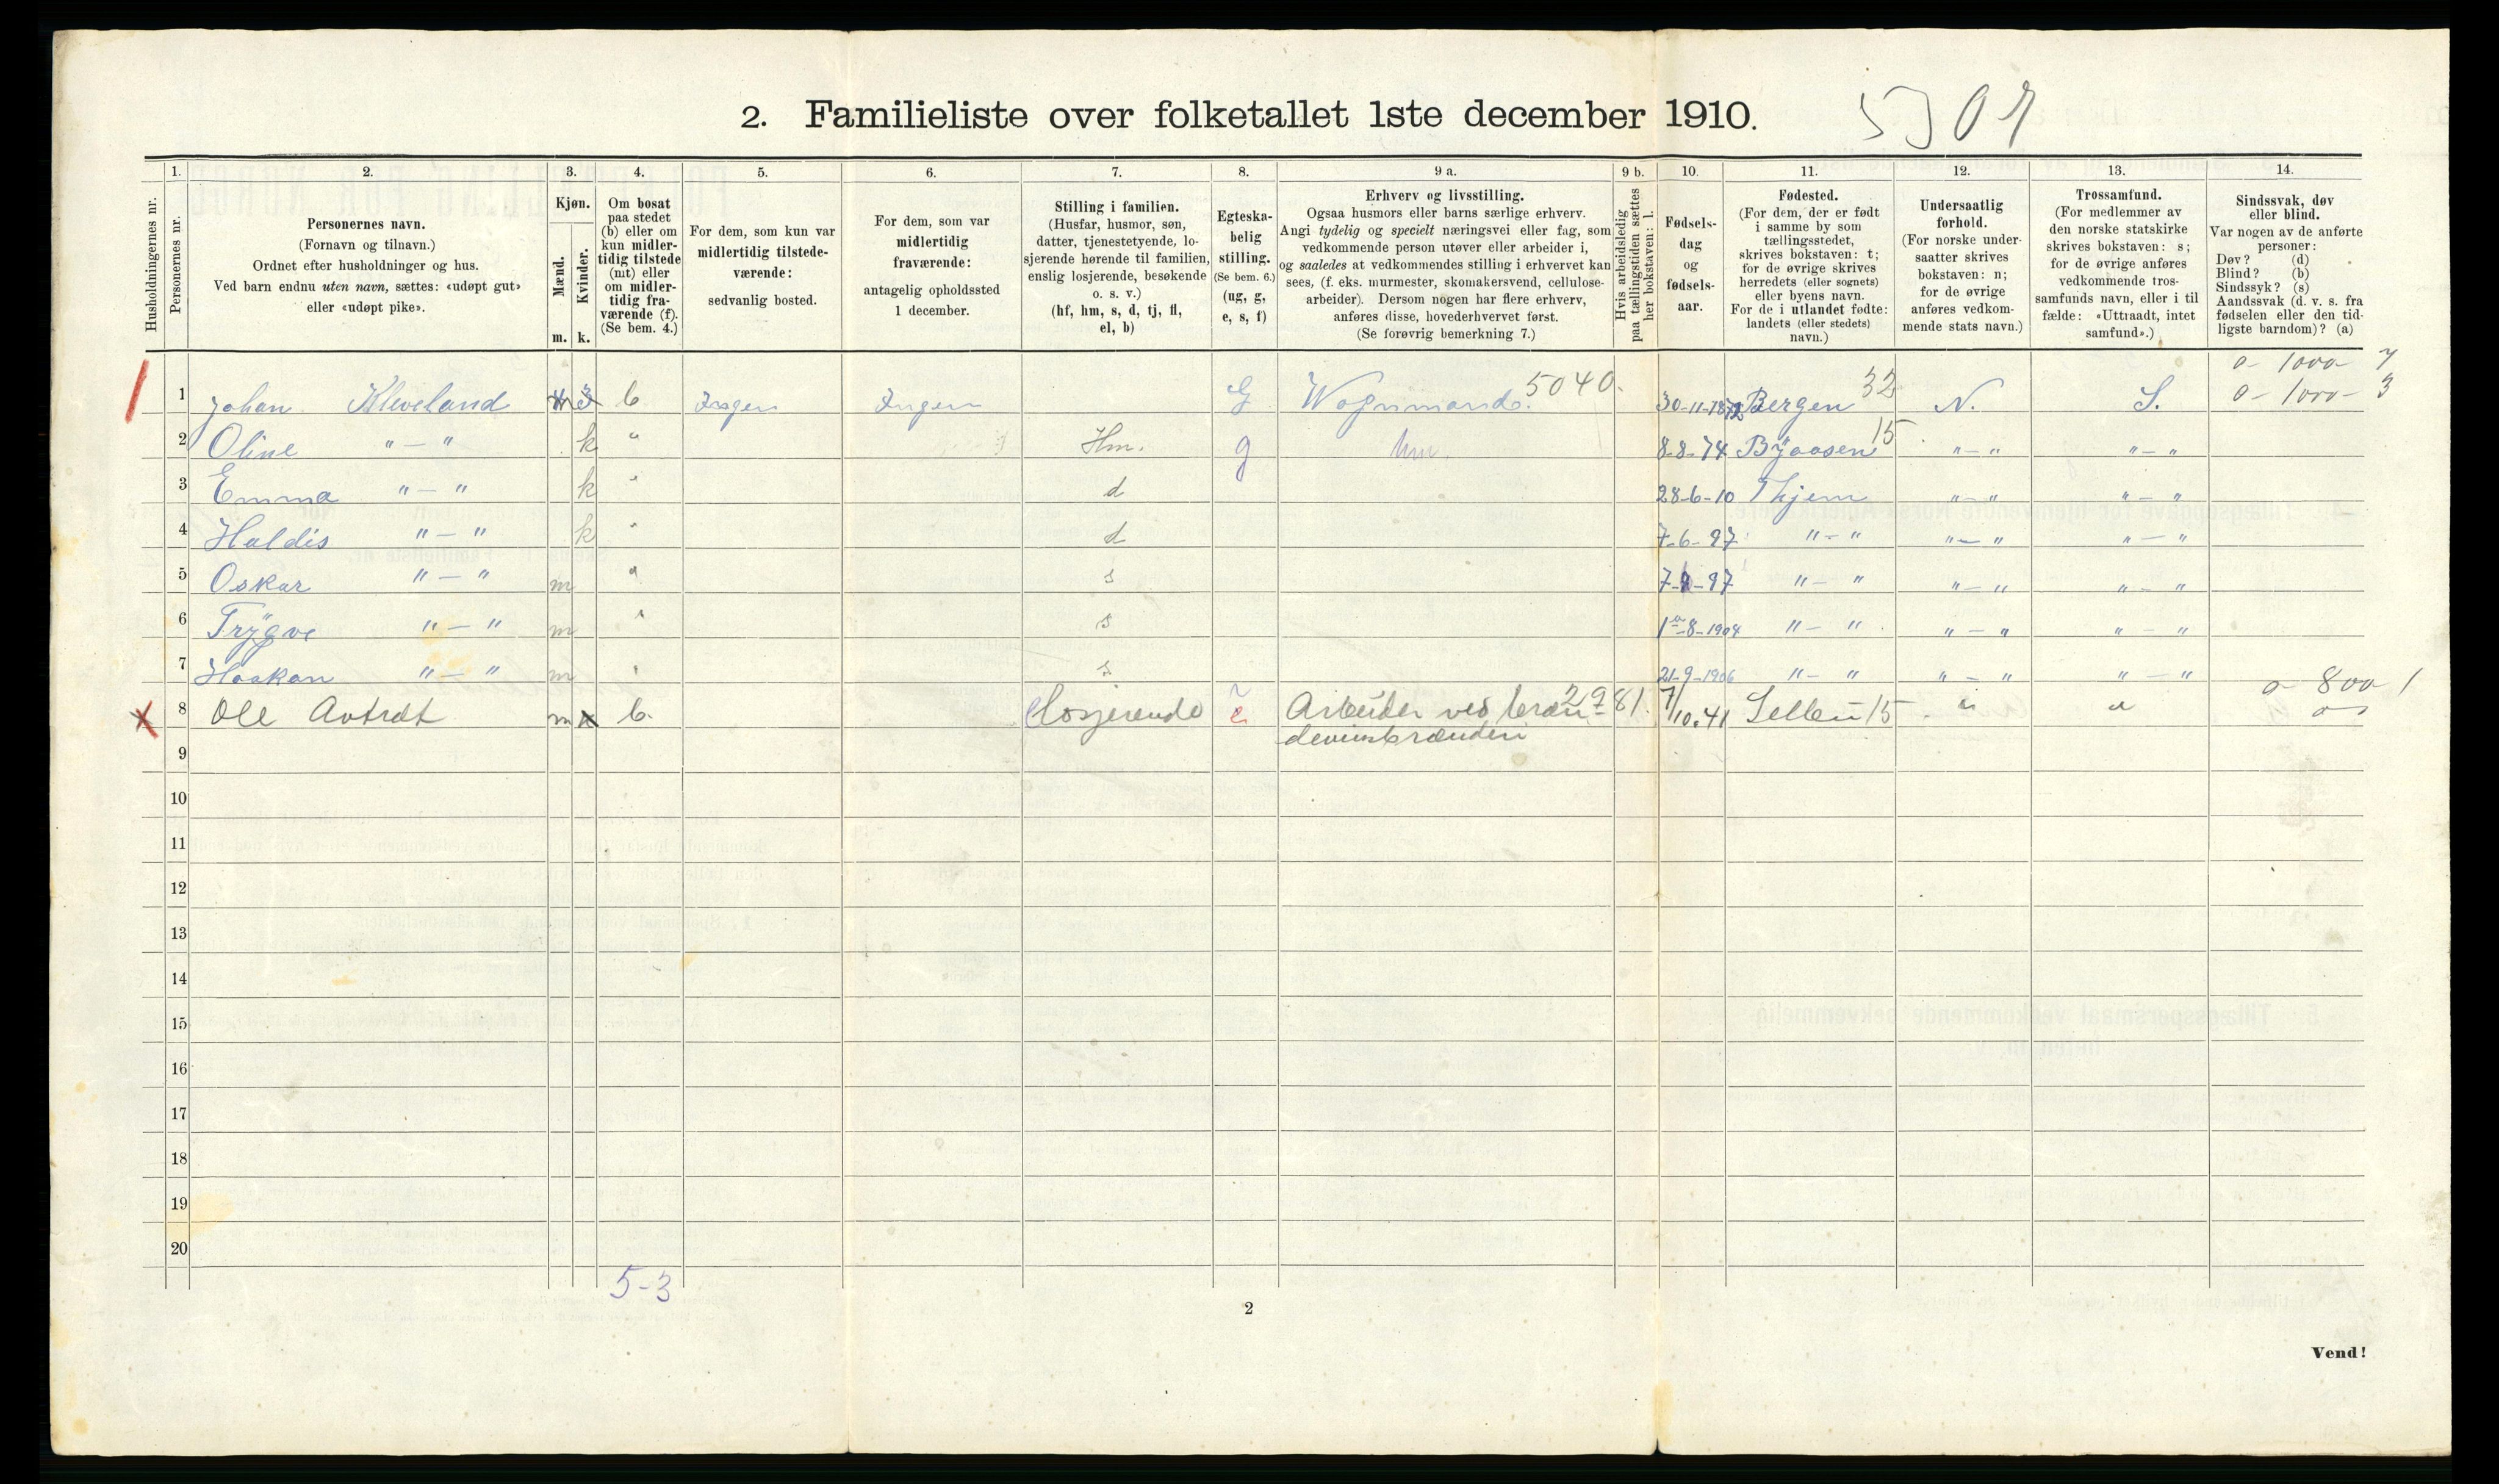 2. Familieliste over folketallet 1ste december 1910.
1. 2. 3. 4. 5. 6. 7. 8. 9 a. 9 b. 10. 11. 12. 13. 14.
Husholdningernes nr.
Personernes nr.
Personernes navn.
(Fornavn og tilnavn.)
Ordnet efter husholdninger og hus.
Ved barn endnu uten navn, sættes: «udøpt gut»
eller «udøpt pike».
Kjøn.
Mænd.
Kvinder.
m. k.
Om bosat
paa stedet
(b) eller om
kun midler-
tidig tilstede
(mt) eller
om midler-
tidig fra-
værende (f).
(Se bem. 4.)
For dem, som kun var
midlertidig tilstede-
værende:
sedvanlig bosted.
For dem, som var
midlertidig
fraværende:
antagelig opholdssted
1 december.
Stilling i familien.
(Husfar, husmor, søn,
datter, tjenestetyende, lo-
sjerende hørende til familien,
enslig losjerende, besøkende
o. s. v.)
(hf, hm, s, d, tj, fl,
el, b)
Egteska-
belig
stilling.
(Se bem. 6.)
(ug, g,
e, s, f)
Erhverv og livsstilling.
Ogsaa husmors eller barns særlige erhverv.
Angi tydelig og specielt næringsvei eller fag, som
vedkommende person utøver eller arbeider i,
og saaledes at vedkommendes stilling i erhvervet kan
sees, (f. eks. murmester, skomakersvend, cellulose-
arbeider). Dersom nogen har flere erhverv,
anføres disse, hovederhvervet først.
(Se forøvrig bemerkning 7.)
Hvis arbeidsledig
paa tællingstiden sættes
her bokstaven: l.
Fødsels-
dag
og
fødsels-
aar.
Fødested.
(For dem, der er født
i samme by som
tællingsstedet,
skrives bokstaven: t;
for de øvrige skrives
herredets (eller sognets)
eller byens navn.
For de i utlandet fødte:
landets (eller stedets)
navn.)
Undersaatlig
forhold.
(For norske under-
saatter skrives
bokstaven: n;
for de øvrige
anføres vedkom-
mende stats navn.)
Trossamfund.
(For medlemmer av
den norske statskirke
skrives bokstaven: s;
for de øvrige anføres
vedkommende tros-
samfunds navn, eller i til
fælde: «Uttraadt, intet
samfund».)
Sindssvak, døv
eller blind.
Var nogen av de anførte
personer:
Døv? (d)
Blind? (b)
Sindssyk? (s)
Aandssvak (d. v. s. fra
fødselen eller den tid-
ligste barndom)? (a)
0 - 1000 - 7
1 Johan Kleveland b Ingen Ingen G Wognmand. 5040. 30-11-1872 Bergen 32 N. S. 0 - 1000 - 3
2 Oline " — " k " Hm. g hm. 8-8-74 Byaasen 15 " — " " — "
3 Emma " — " k " d 28-6-10 Thjem " — " " — "
4 Haldis " — " k " d 7-6-97 " — " " — " " — "
5 Oskar " — " m " s 7- -97 " — " " — " " — "
6 Trygve " — " m " s 1-8-1904 " — " " — " " — "
7 Haakon " — " m " s 21-9-1906 " — " " — " " — "
0 - 800 1
8 Ole m b. losjerende e Arbeider ved bræn- 2981. 7/10.41 15 " "
9
10
11
12
13
14
15
16
17
18
19
20
5-3
2
Vend!